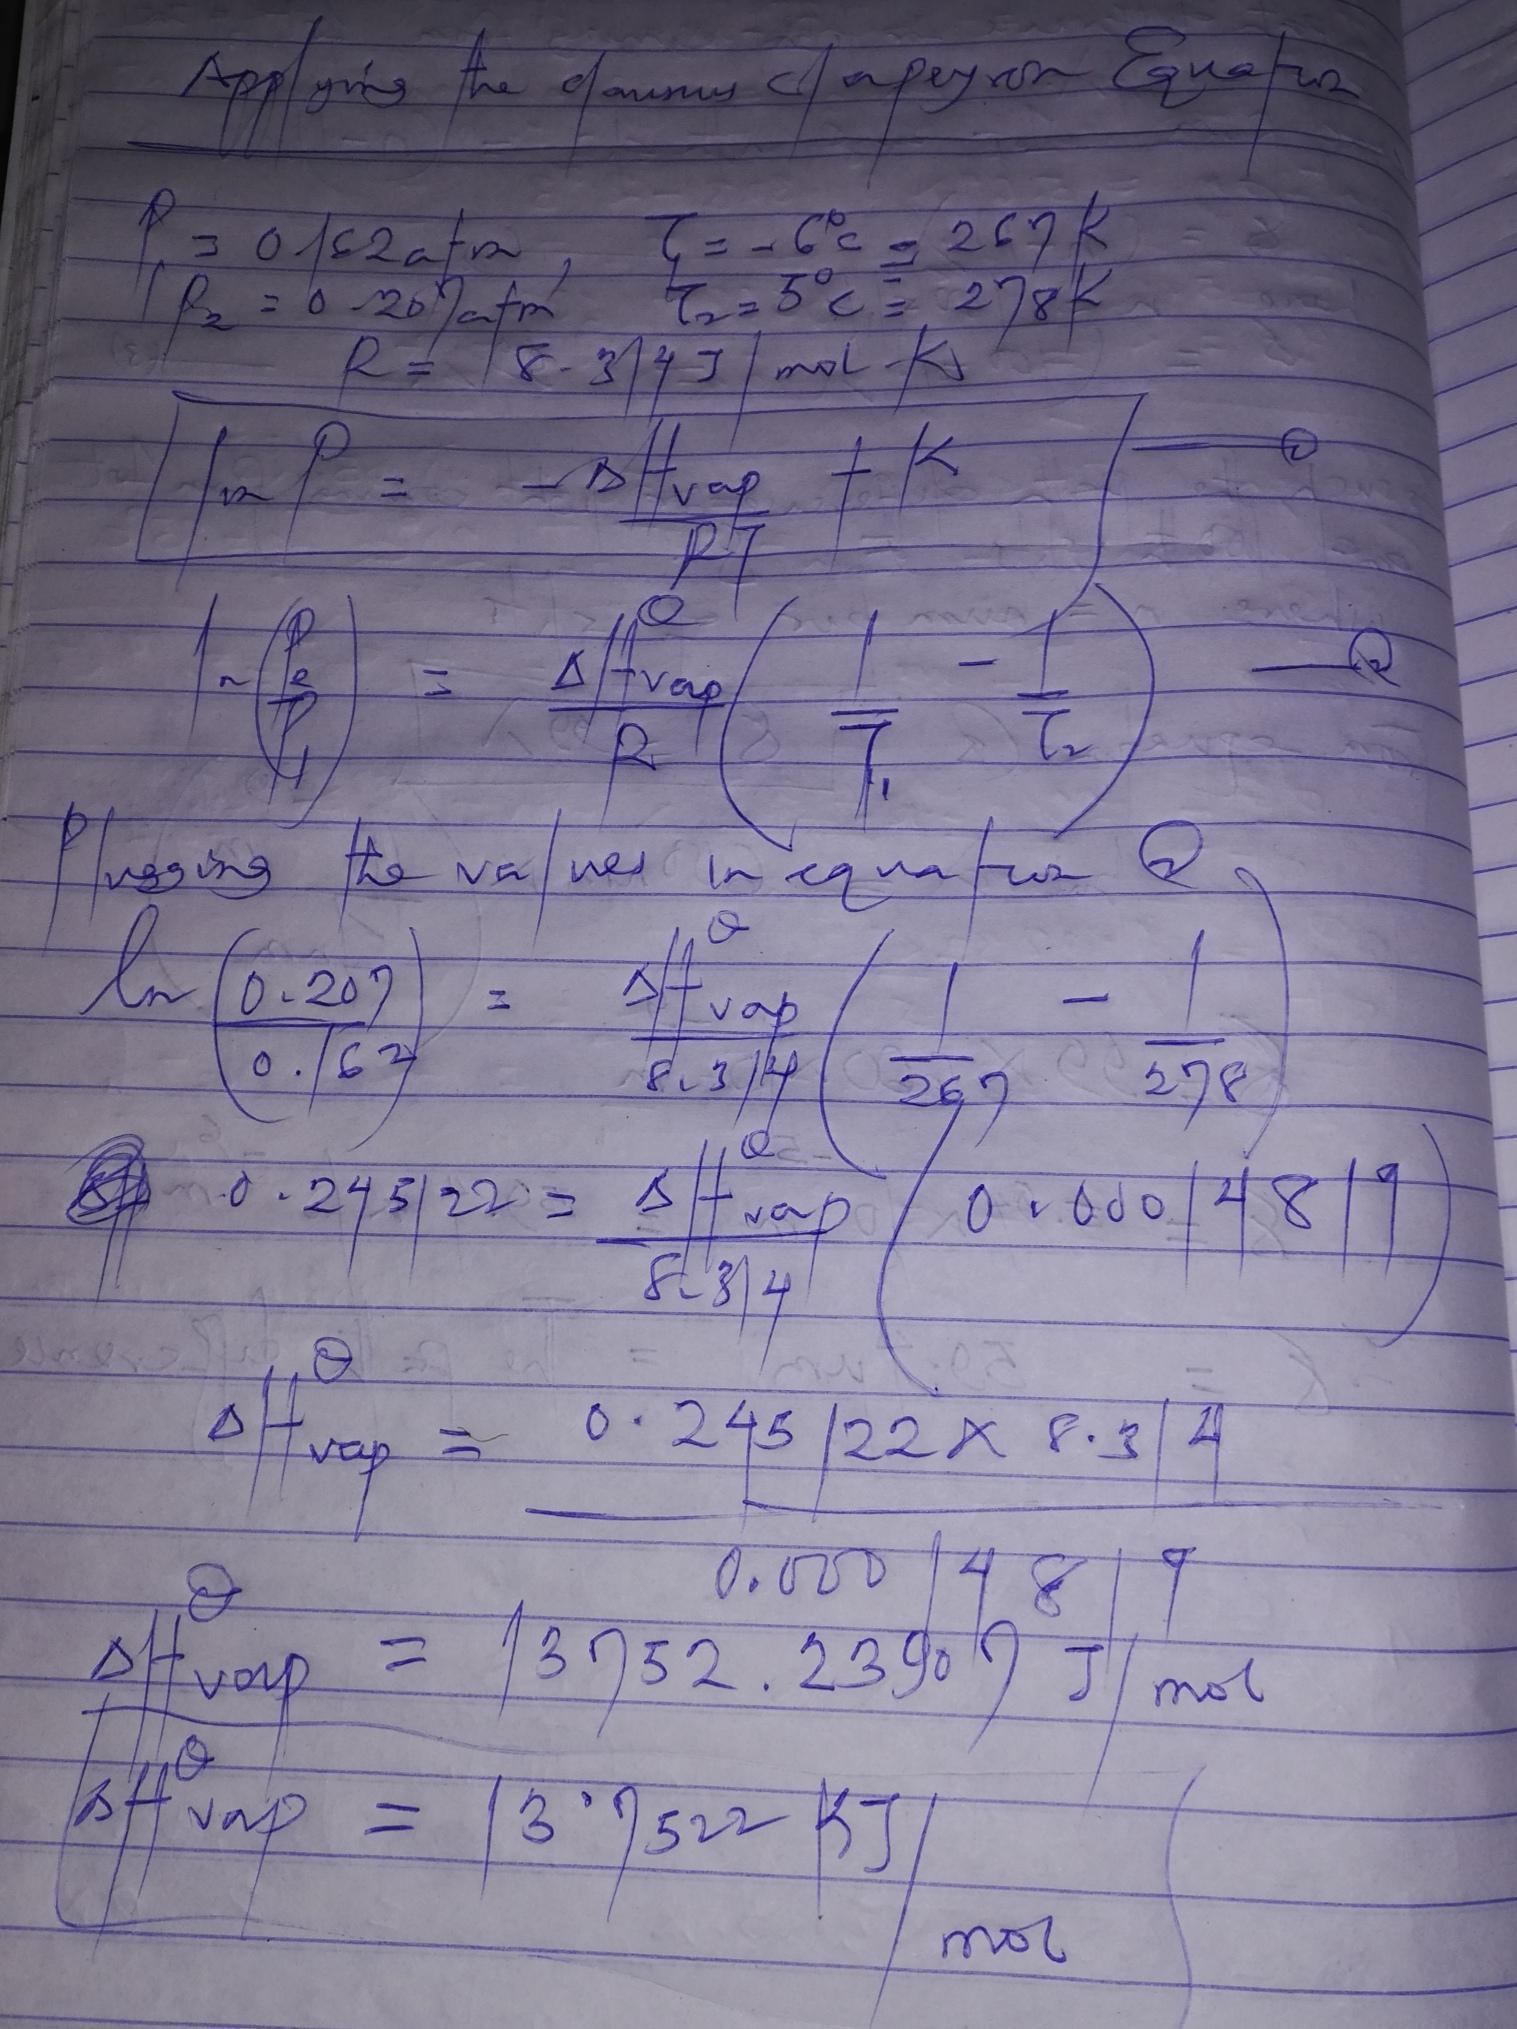 Applying the clausius clapeyron Equation
P₁ = 0.162 atm, T₁ = -6°C = 267 K
P₂ = 0.207 atm T₂ = 5°C = 278 K
R = 8.314 J/mol-K
ln P = -ΔHvap/RT + K — ①
ln(P₂/P₁) = ΔH°vap/R (1/T₁ - 1/T₂) — ②
Plugging the values in equation ②
ln(0.207/0.162) = ΔH°vap/8.314 (1/267 - 1/278)
0.245122 = ΔH°vap/8.314 (0.00014819)
ΔH°vap = 0.245122 × 8.314 / 0.00014819
ΔH°vap = 13752.23907 J/mol
ΔH°vap = 13.7522 KJ/mol